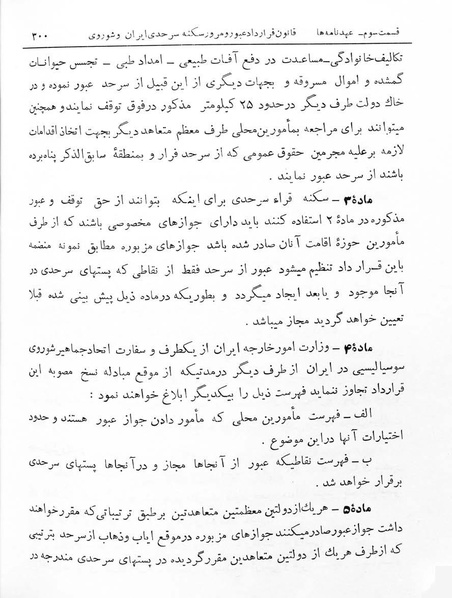 قسمت سوم ـ عهدنامه‌ها قانون قرارداد عبور و مرور سکنه سرحدی ایران و شوروی ۳۰۰
تکالیف خانوادگی ـ مساعدت در دفع آفات طبیعی ـ امداد طبی ـ تجسس حیوانات
گمشده و اموال مسروقه و بجهات دیگری از این قبیل از سرحد عبور نموده و در
خاك دولت طرف دیگر در حدود ۲۵ کیلومتر مذکور در فوق توقف نمایند و همچنین
میتوانند برای مراجعه بمأمورین محلی طرف معظم متعاهد دیگر بجهت اتخاذ اقدامات
لازمه بر علیه مجرمین حقوق عمومی که از سرحد فرار و بمنطقهٔ سابق‌الذکر پناه برده
باشند از سرحد عبور نمایند .
مادهٔ ۳ ـ سکنه قراء سرحدی برای اینکه بتوانند از حق توقف و عبور
مذکوره در مادهٔ ۲ استفاده کنند باید دارای جوازهای مخصوصی باشند که از طرف
مأمورین حوزهٔ اقامت آنان صادر شده باشد جوازهای مزبوره مطابق نمونه منضمه
باین قرار داد تنظیم میشود عبور از سرحد فقط از نقاطی که پستهای سرحدی در
آنجا موجود و یا بعد ایجاد میگردد و بطوریکه در ماده ذیل پیش بینی شده قبلا
تعیین خواهد گردید مجاز میباشد .
مادهٔ ۴ ـ وزارت امور خارجه ایران از یکطرف و سفارت اتحاد جماهیر شوروی
سوسیالیسی در ایران از طرف دیگر در مدتیکه از موقع مبادله نسخ مصوبه این
قرارداد تجاوز ننماید فهرست ذیل را بیکدیگر ابلاغ خواهند نمود :
الف ـ فهرست مأمورین محلی که مأمور دادن جواز عبور هستند و حدود
اختیارات آنها در این موضوع .
ب ـ فهرست نقاطیکه عبور از آنجاها مجاز و در آنجاها پستهای سرحدی
برقرار خواهد شد .
مادهٔ ۵ ـ هر یك از دولتین معظمتین متعاهدتین بر طبق ترتیباتی که مقرر خواهند
داشت جواز عبور صادر میکنند جوازهای مزبوره در موقع ایاب و ذهاب از سرحد بترتیبی
که از طرف هر یك از دولتین متعاهدین مقرر گردیده در پستهای سرحدی مندرجه در